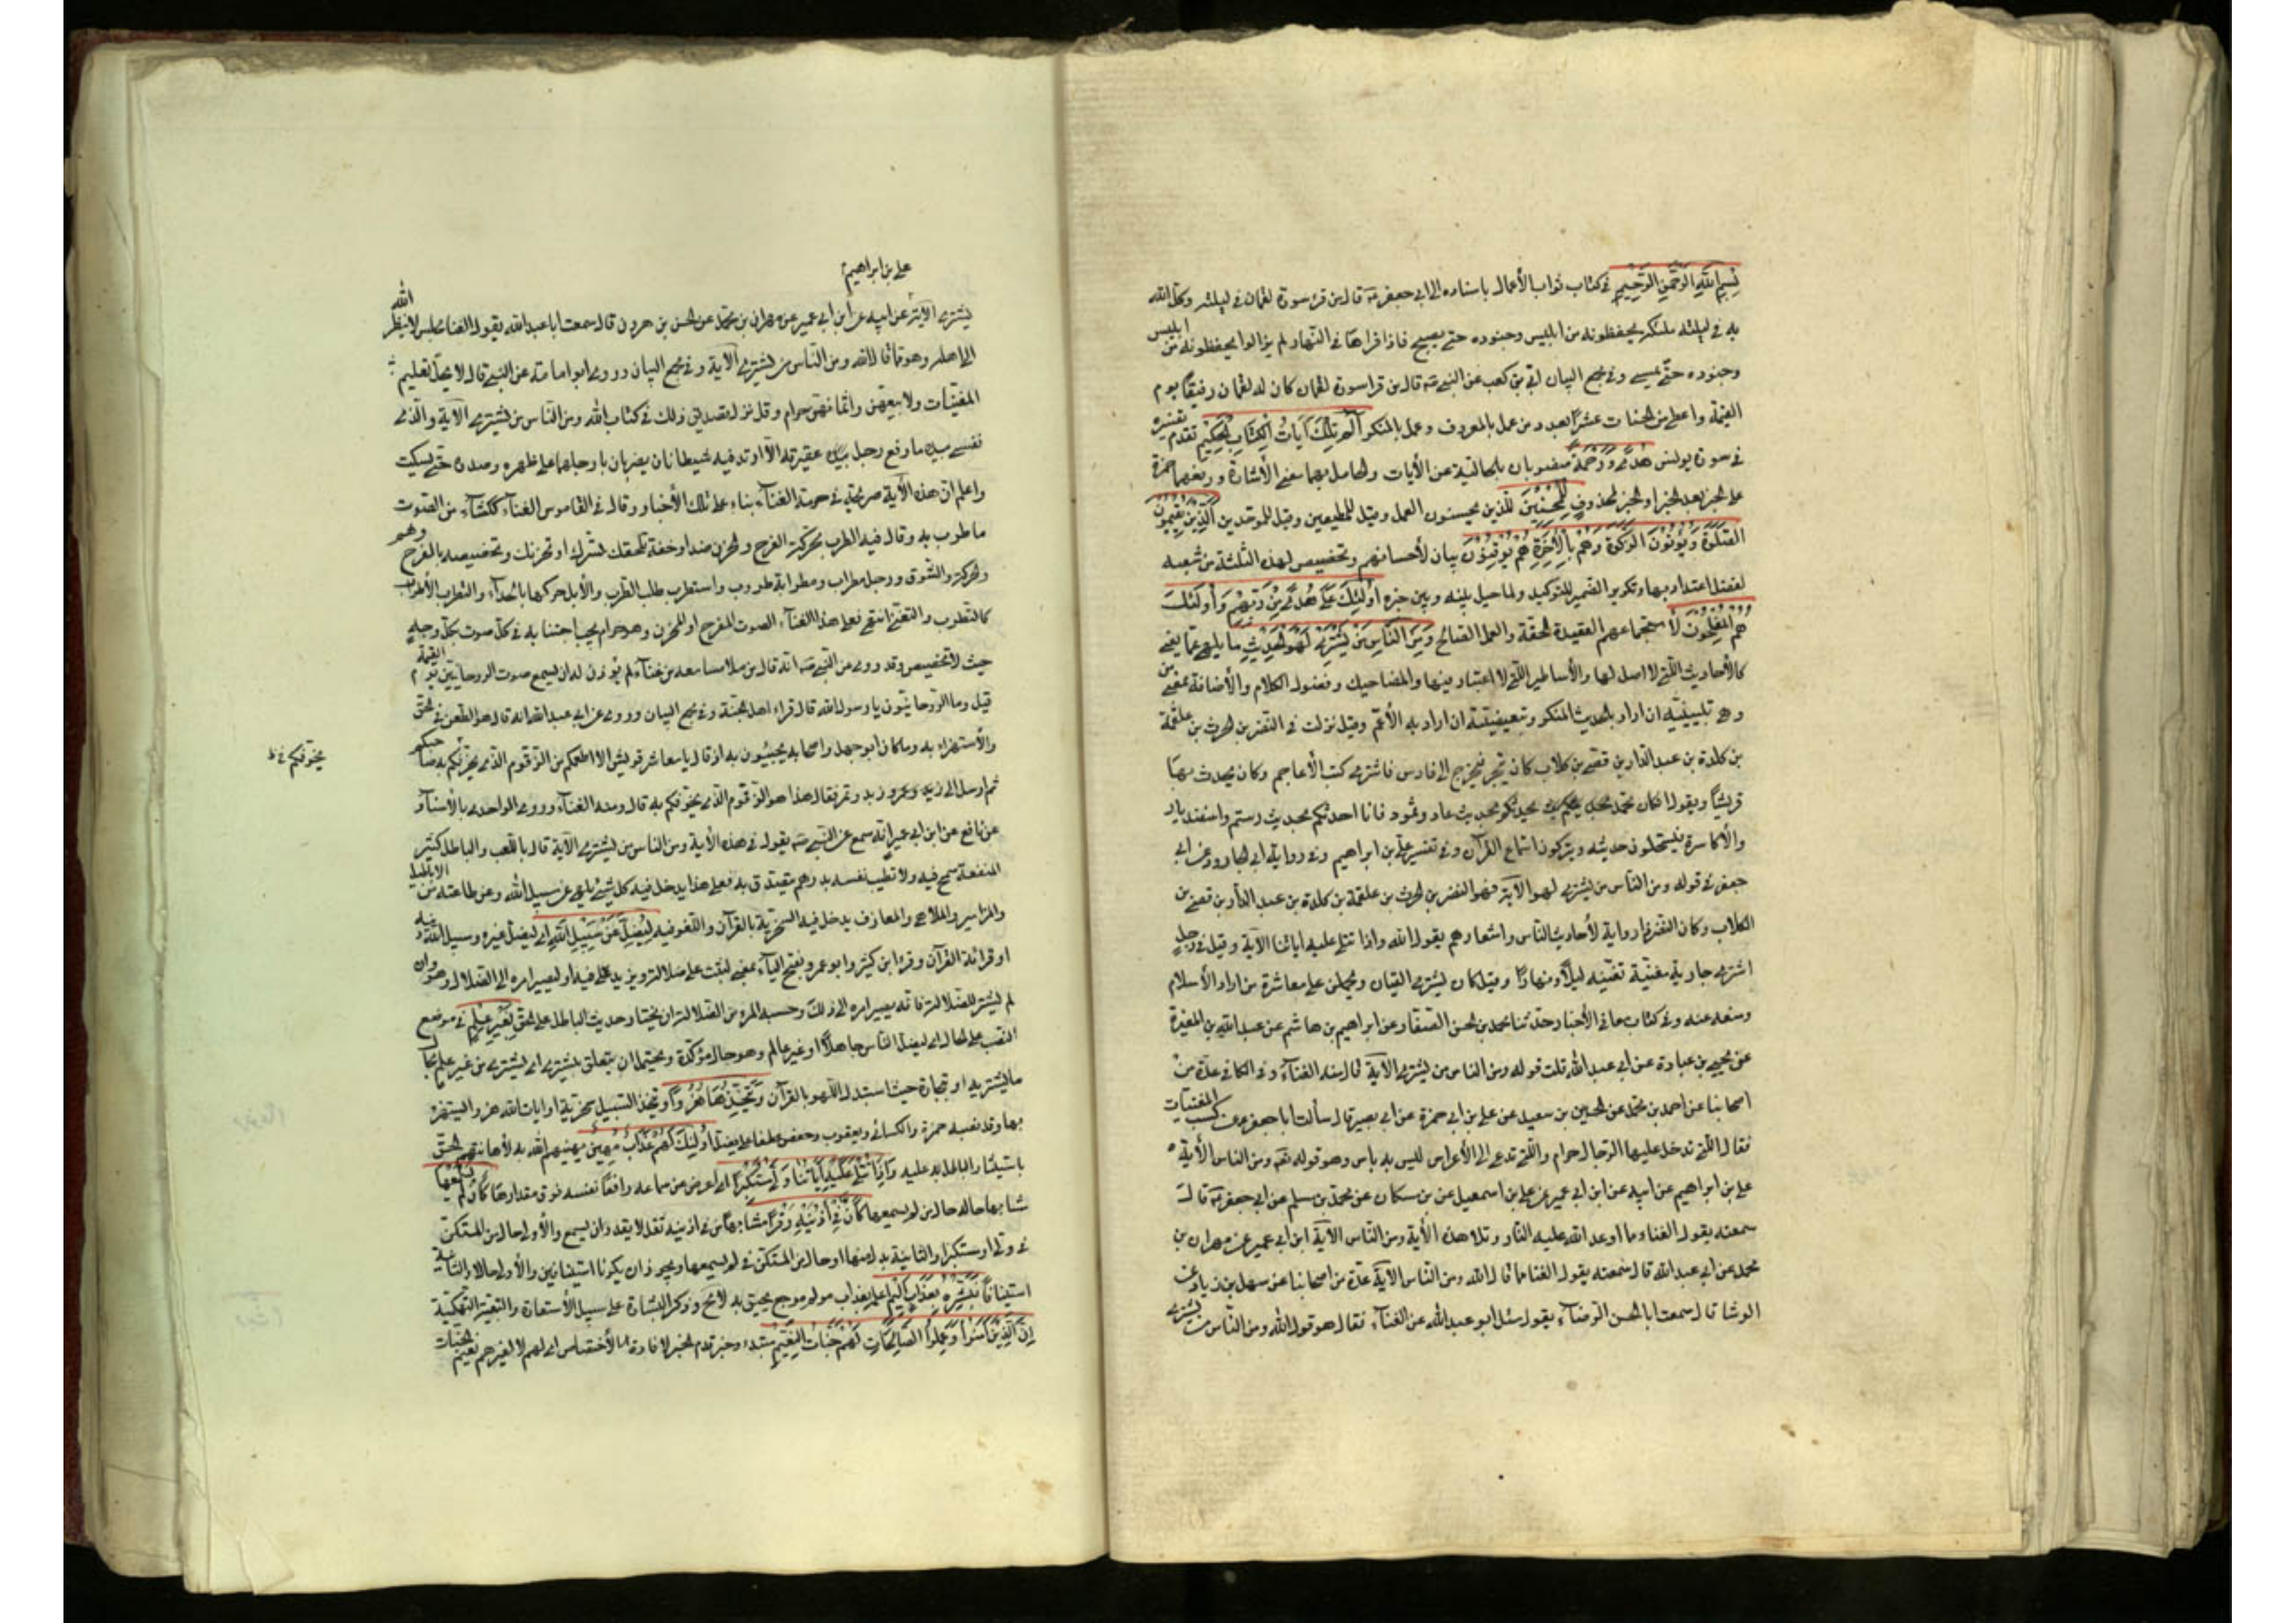 بِسْمِ اللَّهِ الرَّحْمنِ الرَّحِيْمِ في كتاب ثواب الأعمال باسناده الى ابي جعفر ع قال من قرء سورة لقمان في ليلته وكل الله
به في ليلته ملئكة يحفظونه من ابليس وجنوده حتى يصبح فاذا قراها في النهار لم يزالوا يحفظونه من ابليس
وجنوده حتى يمسي وفي مجمع البيان ابي بن كعب عن النبي ص قال من قرا سورة لقمان كان له لقمان رفيقا يوم
القيمة واعطي من الحسنات عشرا بعدد من عمل بالمعروف وعمل بالمنكر الم تِلْكَ آيَاتُ الْكِتَابِ الْحَكِيْمِ تقدم تفسيره
في سورة يونس هُدًى وَرَحْمَةً منصوبان بالحالية عن الأيات والعامل فيهما معنى الأشارة ورفعهما حمزة
على الخبر بعد الخبر او الخبر لمحذوف لِلْمُحْسِنِيْنَ للذين يحسنون العمل وقيل للمطيعين وقيل للموحدين الَّذِيْنَ يُقِيْمُوْنَ
الصَّلَوةَ وَيُؤْتُوْنَ الزَّكَوةَ وَهُمْ بِالْآخِرَةِ هُمْ يُوْقِنُوْنَ بيان لأحسانهم وتخصيص لهذه الثلثة من شعبه
لفضل اعتداد بها وتكرير الضمير للتوكيد ولما حيل بينه وبين خبره أُوْلَئِكَ عَلَى هُدًى مِنْ رَبِّهِمْ وَأُولَئِكَ
هُمُ الْمُفْلِحُوْنَ لأستجماعهم العقيدة الحقة والعمل الصالح وَمِنَ النَّاسِ مَنْ يَشْتَرِي لَهْوَ الْحَدِيْثِ ما يلهي عما يعني
كالأحاديث التي لا اصل لها والأساطير التي لا اعتبار فيها والمضاحيك وفضول الكلام والأضافة بمعنى من
وهي تبيينية ان اراد بالحديث المنكر وتبعيضية ان اراد به الأعم وقيل نزلت في النضر بن الحرث بن علقمة
بن كلدة بن عبد الدار بن قصي بن كلاب كان يتجر فيخرج الى فارس فاشترى كتب الأعاجم وكان يحدث بها
قريشا ويقول ان كان محمد يحدثكم بحديث عاد وثمود فانا احدثكم بحديث رستم واسفنديار
والأكاسرة فيستملحون حديثه ويتركون استماع القرآن وفي تفسير علي بن ابراهيم وفي رواية ابي الجارود عن ابي
جعفر في قوله ومن الناس من يشتري لهو الآية فهو النضر بن الحرث بن علقمة بن كلدة بن عبد الدار بن قصي بن
الكلاب وكان النضر ذا رواية لأحاديث الناس واشعارهم يقول الله واذا تتلى عليه اياتنا الآية وقيل في رجل
اشترى جارية مغنية تغنيه ليلا ونهارا وقيل كان يشتري القيان ويحملهن على معاشرة من اراد الأسلام
ومنعه عنه وفي كتاب معاني الأخبار حدثنا محمد بن الحسن الصفار عن ابراهيم بن هاشم عن عبد الله بن المغيرة
عن يحيى بن عبادة عن ابي عبد الله قلت قوله ومن الناس من يشتري الآية قال منه الغناء وفي الكافي عدة من
اصحابنا عن احمد بن محمد عن الحسين بن سعيد عن علي بن ابي حمزة عن ابي بصير قال سألت ابا جعفر ع عن كسب المغنيات
فقال التي تدخل عليها الرجال حرام والتي تدعى الى الأعراس ليس به باس وهو قوله تع ومن الناس الأية
علي بن ابراهيم عن ابيه عن ابن ابي عمير عن علي بن اسمعيل عن بن مسكان عن محمد بن مسلم عن ابي جعفر ع قال
سمعته يقول الغنا مما اوعد الله عليه النار وتلا هذه الأية ومن الناس الآية ابن ابي عمير عن مهران بن
محمد عن ابي عبد الله قال سمعته يقول الغنا مما قال الله ومن الناس الآية عدة من اصحابنا عن سهل بن زياد عن
الوشا قال سمعت ابا الحسن الرضا ع يقول سئل ابو عبد الله عن الغناء فقال هو قول الله ومن الناس من يشتري
علي بن ابراهيم
يشتري الآية عن ابيه عن ابن ابي عمير عن مهران بن محمد عن الحسن بن هرون قال سمعت ابا عبد الله يقول الغنا مجلس لا ينظر الله
الى اهله وهو مما قال الله ومن الناس من يشتري الآية وفي مجمع البيان وروى ابو امامة عن النبي قال لا يحل تعليم
المغنيات ولا بيعهن واثمانهن حرام وقد نزل تصديق ذلك في كتاب الله ومن الناس من يشتري الآية والذي
نفسي بيده ما رفع رجل عقيرته الا ارتدفه شيطانان يضربان بارجلهما على ظهره وصدره حتى يسكت
واعلم ان هذه الآية صريحة في حرمة الغناء بناء على تلك الأخبار وقال في القاموس الغناء ككساء من الصوت
ما طرب به وقال فيه الطرب محركة الفرح والحزن ضد او خفة تلحقك لتسرك او تحزنك وتخصيصه بالفرح وهم
والحركة والشوق ورجل مطراب ومطرابة طروب واستطرب طلب الطرب والأبل حركها بالحداء والتطريب الأطراب
كالتطرب والتغني انتهى فعلى هذا الغناء الصوت المفرح او المحزن وهو حرام يجب اجتنابه في كل صوت بكل وجه
حيث لا تخصيص وقد روي عن النبي ص انه قال من ملا مسامعه من غناء لم يؤذن له ان يسمع صوت الروحانيين يوم القيمة
قيل وما الروحانيون يا رسول الله قال قراء اهل الجنة وفي مجمع البيان وروى عن ابي عبد الله انه قال هو الطعن في الحق
والأستهزاء به وما كان ابو جهل واصحابه يجيئون به اذ قال يا معاشر قريش الا اطعمكم من الزقوم الذي يخوفكم به صاحبكم
يخوفكم خ ظ
ثم ارسل الى زبد وتمر فقال هذا هو الزقوم الذي يخوفكم به قال ومنه الغناء وروى الواحدي بالأسناد
عن نافع عن ابن ابي عمير انه سمع عن النبي ص يقول في هذه الأية ومن الناس من يشتري الآية قال باللعب والباطل كثير
المنفعة سمح فيه ولا تطيب نفسه بدرهم يتصدق به فعلى هذا يدخل فيه كل شيء يلهي عن سبيل الله وعن طاعته من الاباطيل
والمزامير والملاهي والمعازف يدخل فيه السخرية بالقرآن واللغو فيه لِيُضِلَّ عَنْ سَبِيْلِ اللَّهِ اي ليضل غيره وسبيل الله
او قرائة القرآن وقرء ابن كثير وابو عمرو بفتح الياء بمعنى ليثبت على ضلالته ويزيد فيه او ليصير امره الى الضلال وهو وان
لم يشتر للضلالة فانه يصير امره الى ذلك وحسب المرء من الضلالة ان يختار حديث الباطل على الحق بِغَيْرِ عِلْمٍ في موضع
النصب على الحال اي ليضل الناس جاهلا او غير عالم وهو حال مؤكدة ويحتمل ان يتعلق بيشتري اي يشتري من غير علم بحال
ما يشتريه او تجارة حيث استبدل اللهو بالقرآن وَيَتَّخِذَهَا هُزُوًا ويتخذ السبيل سخرية او ايات الله هزوا ليستهزء
بها وقد نصبه حمزة والكسائي ويعقوب وحفص عطفا على يضل أُوْلَئِكَ لَهُمْ عَذَابٌ مُهِيْنٌ يهينهم الله به لأهانتهم الحق
باستيثار الباطل به عليه وَإِذَا تُتْلَى عَلَيْهِ آيَاتُنَا وَلَّى مُسْتَكْبِرًا اي اعرض عن سماعه رافعا نفسه فوق مقدارها كَأَنْ لَمْ يَسْمَعْهَا
مشابها حاله حال من لم يسمعها كَأَنَّ فِي أُذُنَيْهِ وَقْرًا مشابها من في اذنيه ثقل لا يقدر ان يسمع والأولى حال من المستكن
في ولى او مستكبرا والثانية بدل منها او حال من المستكن في لم يسمعها ويجوز ان يكونا استينافين والأولى حالا والثانية
استينافا فَبَشِّرْهُ بِعَذَابٍ أَلِيْمٍ اعلمه بعذاب مولم موجع يحيق به لا مح وذكر البشارة على سبيل الأستعارة والتبعية التهكمية
إِنَّ الَّذِيْنَ آمَنُوْا وَعَمِلُوا الصَّالِحَاتِ لَهُمْ جَنَّاتُ النَّعِيْمِ مبتدء وخبر قدم الخبر لافادة الأختصاص اي لهم لا لغيرهم نعيم الجنات